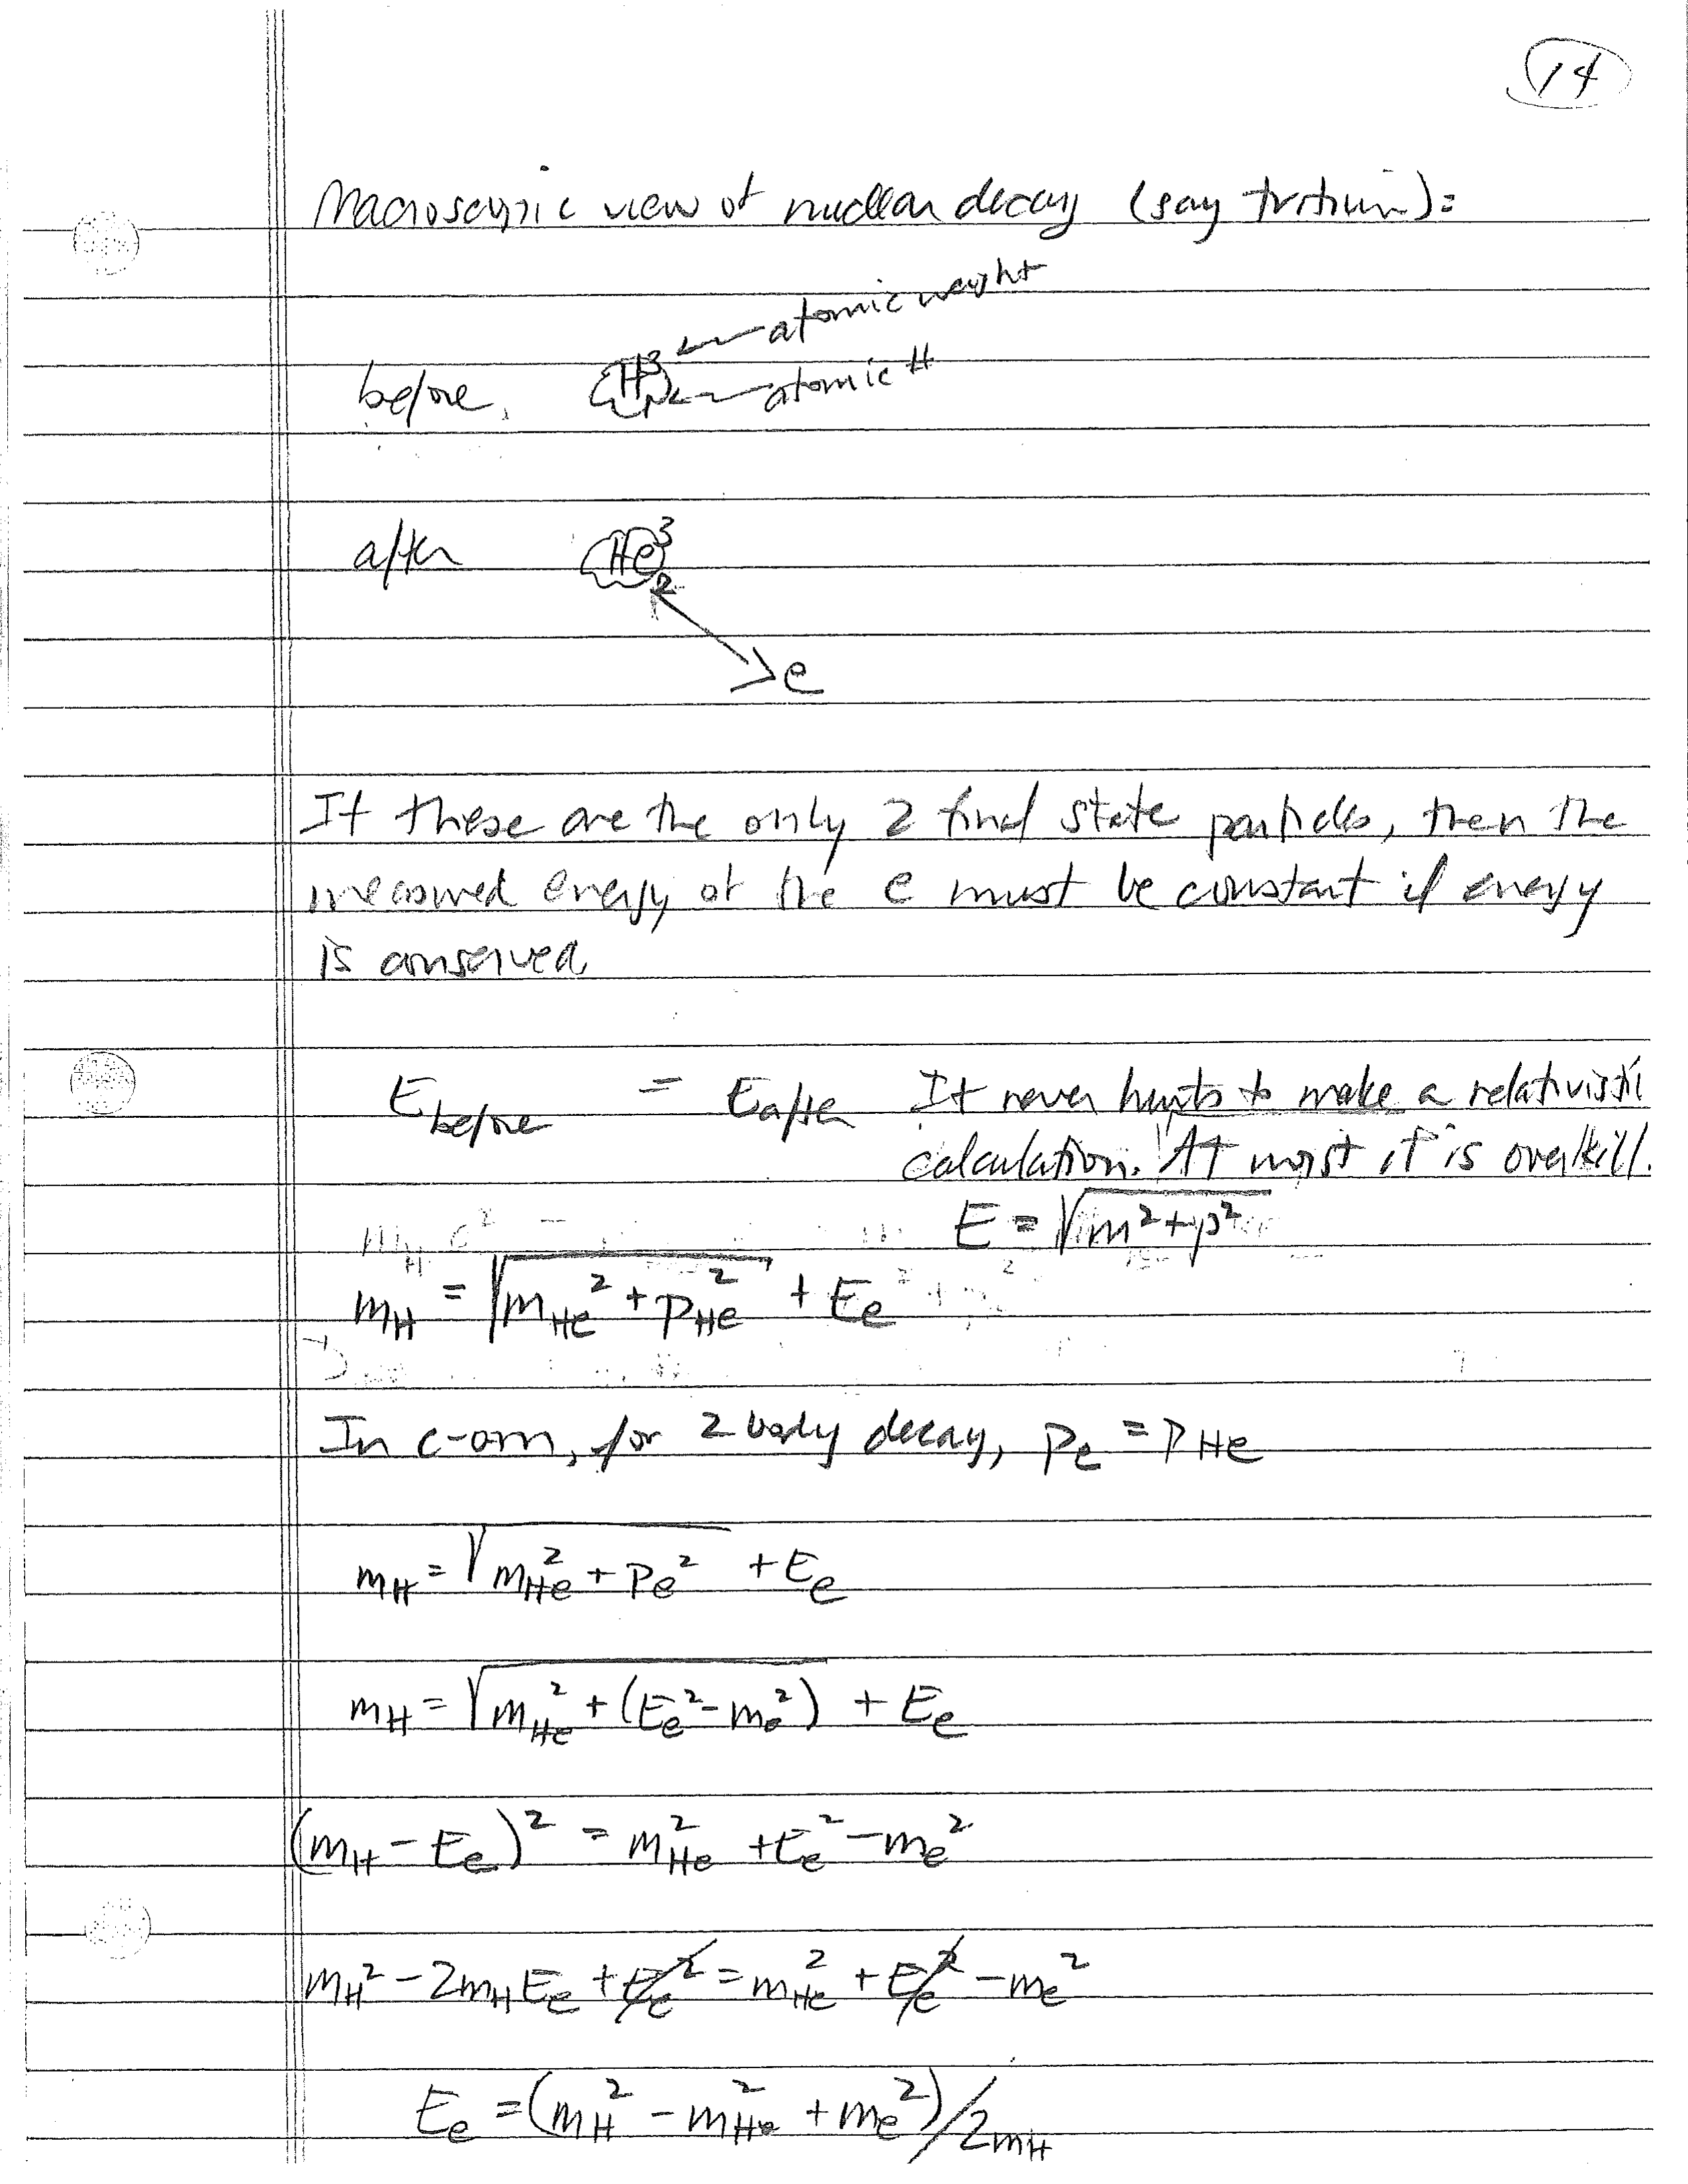 14
Macroscopic view of nuclear decay (say tritium):
before, H³₁ ← atomic weight
← atomic #
after He³₂
e
If these are the only 2 final state particles, then the
measured energy of the e must be constant if energy
is conserved
E_before = E_after It never hurts to make a relativistic
calculation. At worst it is overkill.
E = √(m² + p²)
m_H = √(m_He² + p_He²) + E_e
In c-om, for 2 body decay, p_e = p_He
m_H = √(m_He² + p_e²) + E_e
m_H = √(m_He² + (E_e² - m_e²)) + E_e
(m_H - E_e)² = m_He² + E_e² - m_e²
m_H² - 2m_H E_e + E_e² = m_He² + E_e² - m_e²
E_e = (m_H² - m_He² + m_e²)/2m_H